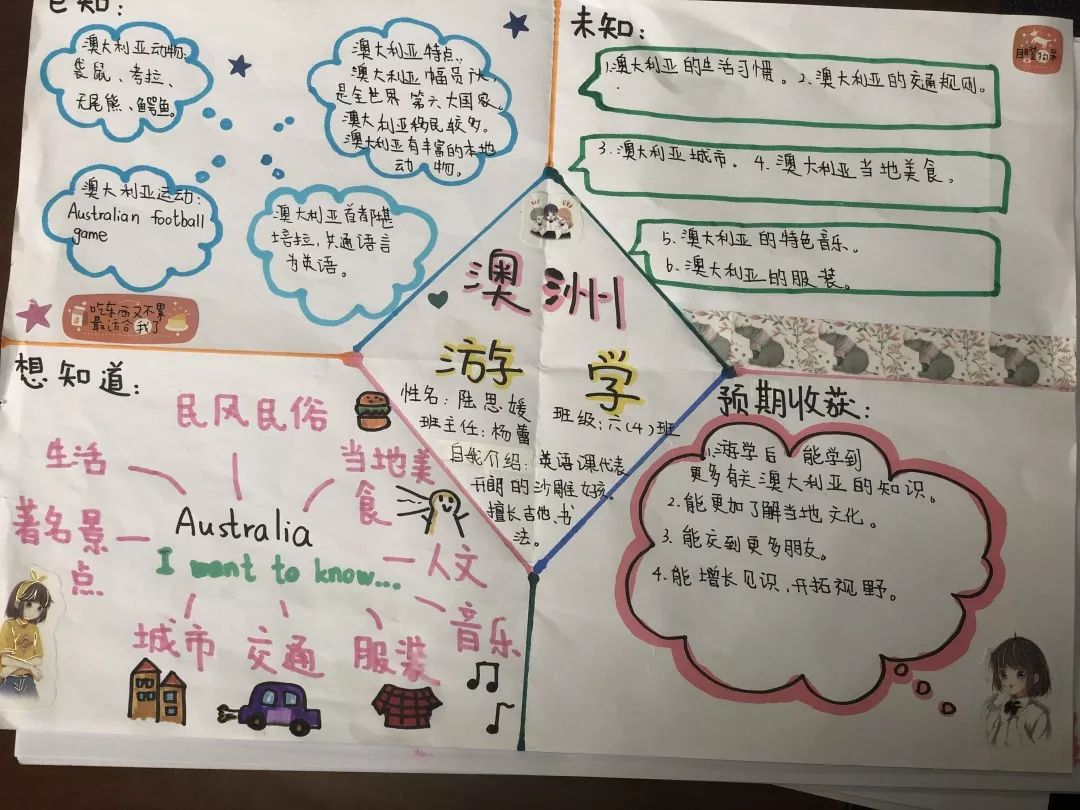 已知:
澳大利亚动物:
袋鼠、考拉、
无尾熊、鳄鱼。
澳大利亚特点:
澳大利亚幅员大,
是全世界第六大国家。
澳大利亚移民较多。
澳大利亚有丰富的本地
动物。
澳大利亚运动:
Australian football
game
澳大利亚首都堪
培拉,共通语言
为英语。
吃东西又不累
最适合我了
未知:
目瞪狗呆
1.澳大利亚的生活习惯。2、澳大利亚的交通规则。
3.澳大利亚城市。4.澳大利亚当地美食。
5.澳大利亚的特色音乐。
6.澳大利亚的服装。
澳洲
游学
姓名:陆思媛
班级:六(4)班
班主任:杨蕾
自我介绍:英语课代表
开朗的沙雕女孩。
擅长吉他、书
法。
想知道:
民风民俗
生活
当地美
食
著名景
点
Australia
I want to know...
人文
音乐
城市 交通 服装
预期收获:
1.游学后,能学到
更多有关澳大利亚的知识。
2.能更加了解当地文化。
3.能交到更多朋友。
4.能增长见识,开拓视野。